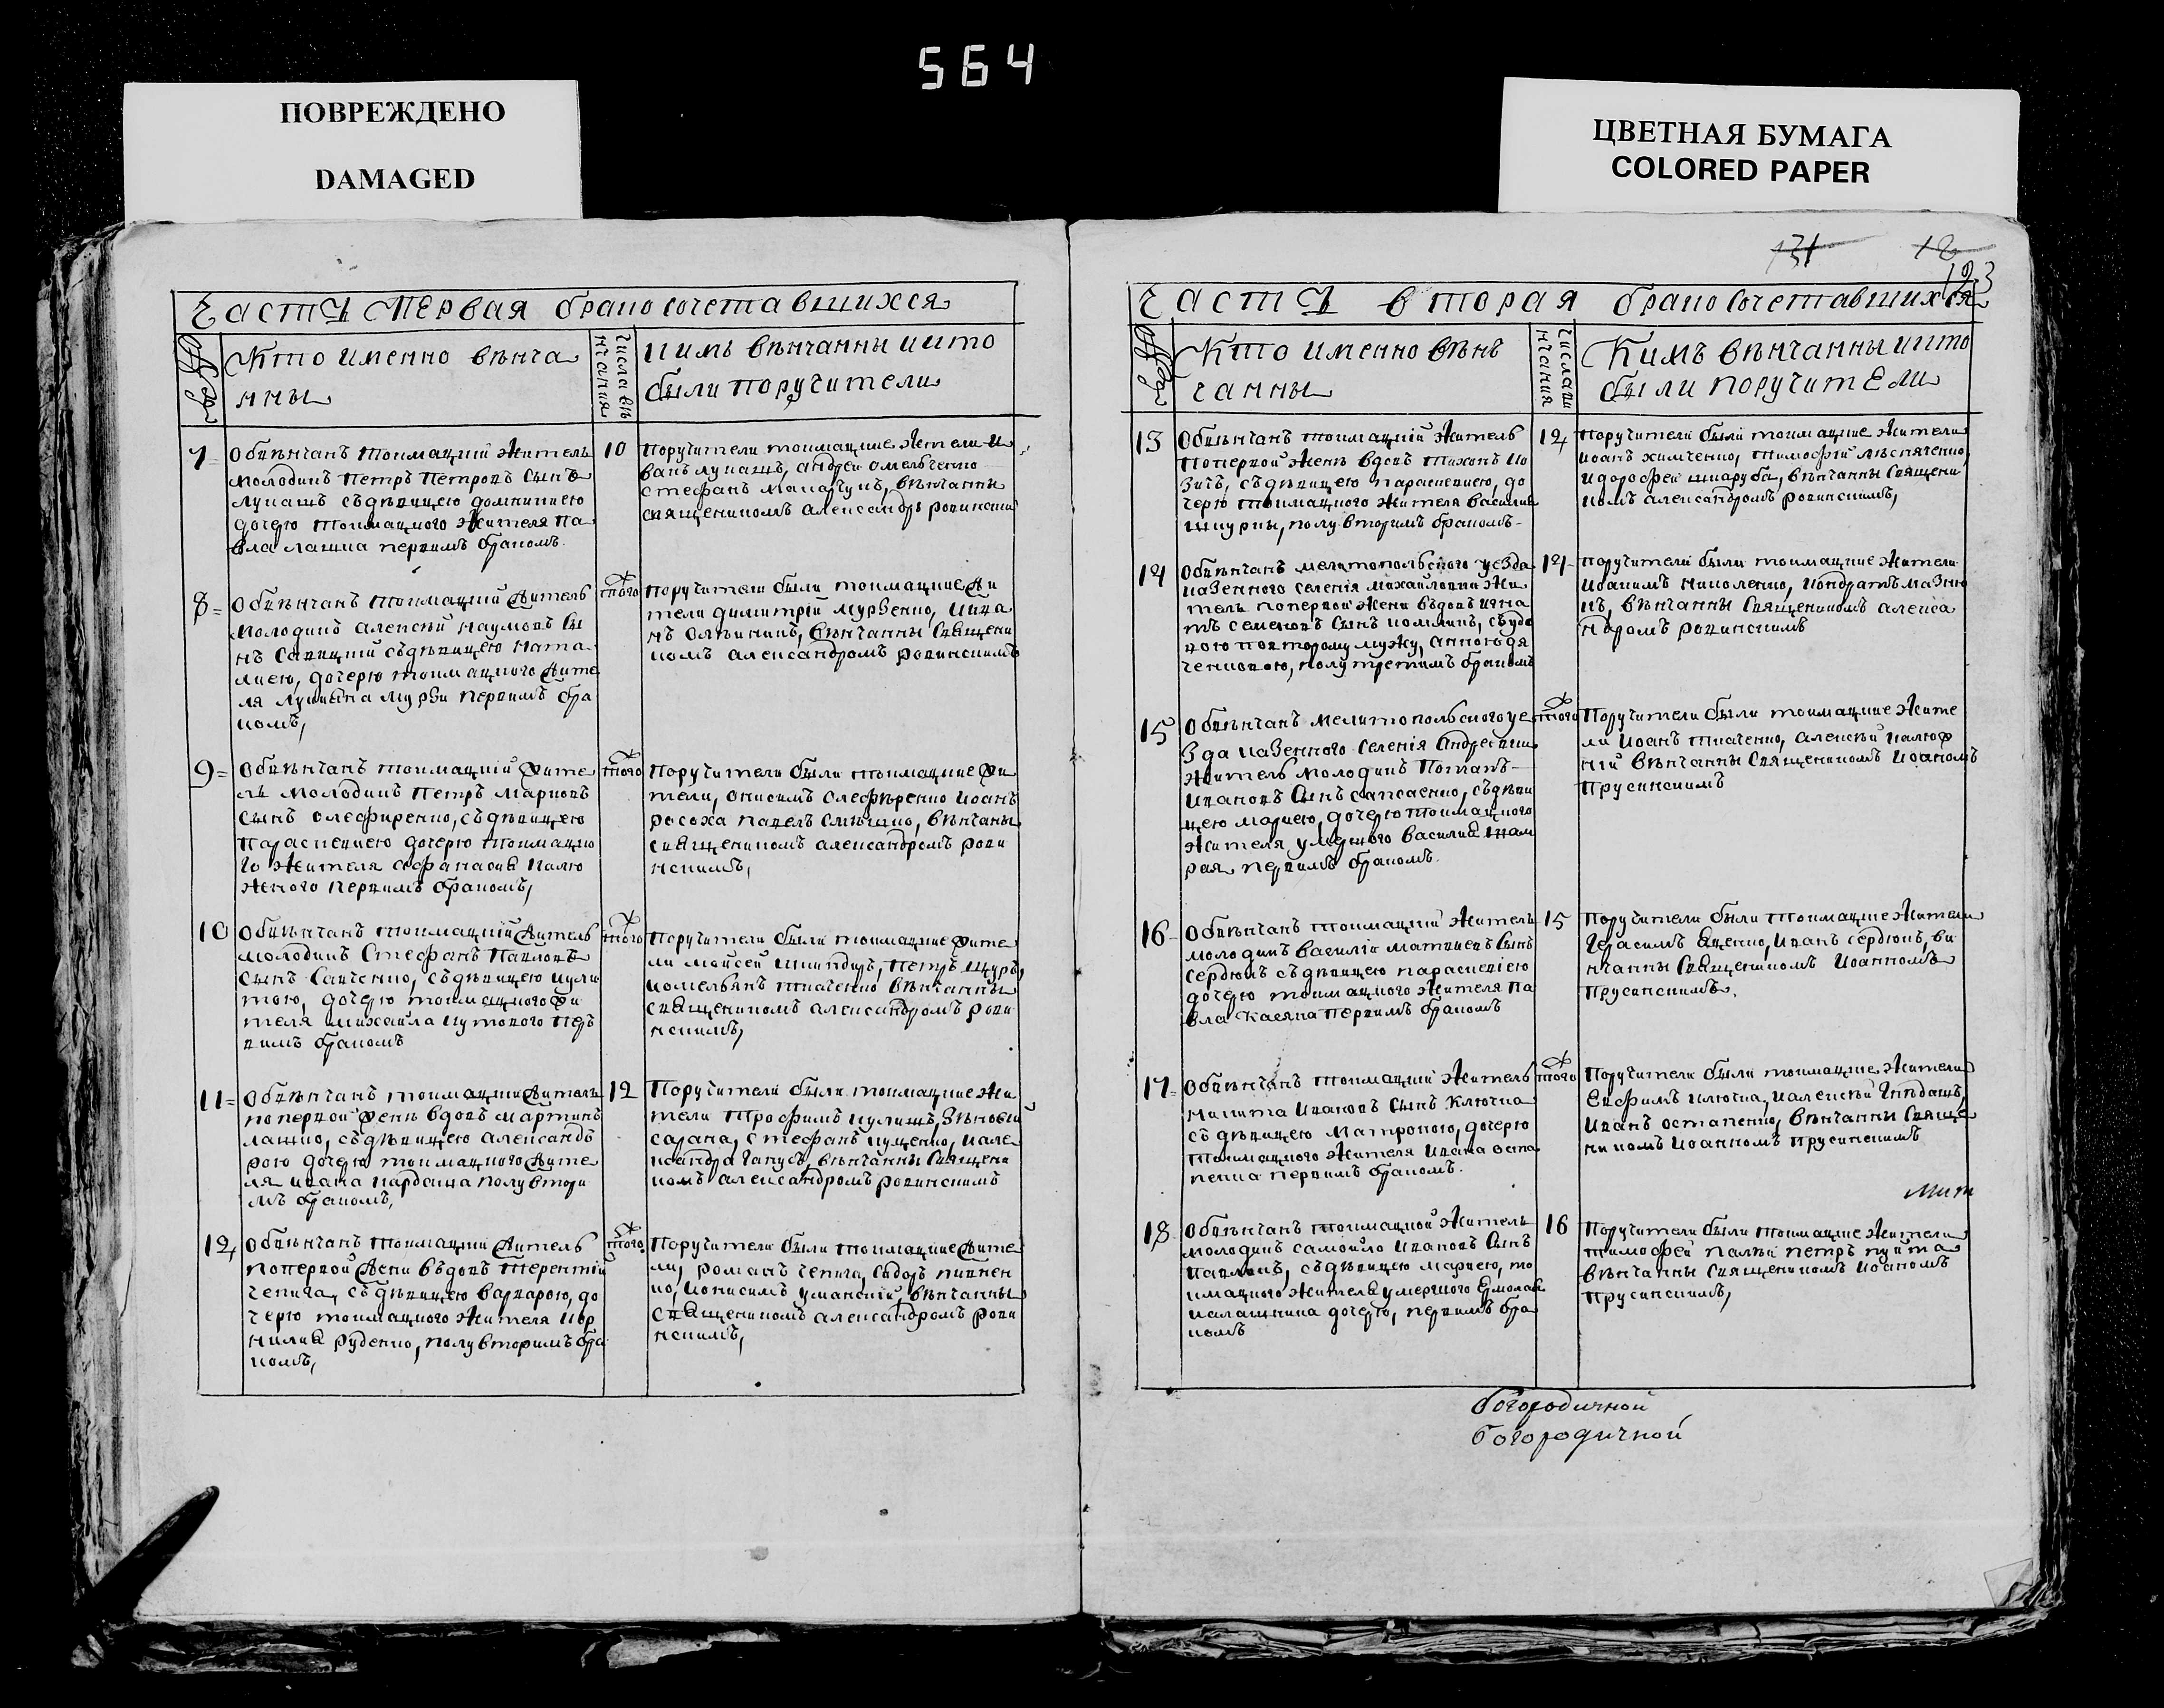 564
ПОВРЕЖДЕНО
DAMAGED
ЦВЕТНАЯ БУМАГА
COLORED PAPER
131
123
Часть Первая брако сочетавшихся
Кто именно вѣнча
нны
Числа вѣ
нчания
кимъ вѣнчанны икто
были поручители
7
Обвѣнчанъ токмацкій житель
молодикъ Петръ Петровъ сынъ
лукашъ съдѣвицею домникиею
дочерю токмацкого жителя Па
вла лашка первимъ бракомъ
10
поручители токмацкие жители И
ванъ лукашъ, андрей омельченко
стефанъ макагунъ, вѣнчанны
священикомъ александръ ровински
8
Обвѣнчанъ токмацкій житель
молодикъ алексѣй наумовъ сы
нъ савицкій съдѣвицею ната
лиею, дочерю токмацкого жите
ля лукияна мурзи первимъ бра
комъ,
того
поручители были токмацкие жи
тели димитрій мурзенко, Ива
нъ олѣйникъ, вѣнчанны священи
комъ александромъ ровинскимъ
9
Обвѣнчанъ токмацкій жите
ль молодикъ Петръ марковъ
сынъ олефиренко, съдѣвицею
Параскевиею дочерю токмацко
го жителя афанасия калю
жного первимъ бракомъ,
того
поручители были токмацкие жи
тели, онисимъ олефѣренко Иоанъ
росоха павелъ смѣшко, вѣнчаны
священикомъ александромъ рови
нскимъ,
10
Обвѣнчанъ токмацкій житель
молодикъ Стефанъ Павловъ
сынъ савченко, съдѣвицею кули
тою, дочерю токмацкого жи
теля михаила кутового пер
вимъ бракомъ
того
Поручители были токмацкие жите
ли моисей шпиндиъ, петръ щуръ,
иомельянъ ткаченко вѣнчанны
священикомъ александромъ рови
нскимъ,
11
Обвѣнчанъ токмацкій житель
попервой женѣ вдовъ мартинъ
лашко, съдѣвицею александъ
рою дочерю токмацкого жите
ля ивана кардаша полувтори
мъ бракомъ,
12
Поручители были токмацкие жи
тели Трофимъ кулишъ, Зѣновій
сарана, стефанъ куценко, иале
ксандра гапусъ, вѣнчанны священи
комъ александромъ ровинскимъ
12
Обвѣнчанъ токмацкій житель
попервой жени въдовъ терентій
чепига, съдѣвицею варварою, до
черю токмацкого жителя кор
нилия руденко, полувторимъ бра
комъ,
того
Поручители были токмацкие жите
ли, романъ чепига, сидоръ пивнен
ко, ионисимъ уманскій, вѣнчанны
священикомъ александромъ рови
нскимъ,
Часть вторая брако сочетавшихся
Кто именно вѣнъ
чанны
Кимъ вѣнчанны икто
были поручители
13
Обвѣнчанъ токмацкій житель
попервой женѣ вдовъ тихонъ ко
зичъ, съдѣвицею параскевиею, до
черю токмацкого жителя василия
шкурки, полувторимъ бракомъ
12
Поручители были токмацкие жители
иоанъ химченко, тимофѣй пѣсняченко,
идорофей шкаруба, вѣнчанны священи
комъ александромъ ровинскимъ,
14
Обвѣнчанъ мелитопольского уезда
казенного селенія михайловки жи
тель попервой жени въдовъ игна
тъ семеновъ сынъ колпикъ, съвдо
вою повторому мужу, анною дя
ченковою, полутретимъ бракомъ
14
поручители были токмацкие жители
Иоакимъ николенко, икондратъ мазню
къ, вѣнчанны священикомъ алекса
ндромъ ровинскимъ
15
Обвѣнчанъ мелитопольского уе
зда казенного селенія андреевки
житель молодикъ Потапъ
ивановъ сынъ сапсаенко, съдѣви
цею мариею, дочерю токмацкого
жителя умершого василия шам
рая, первимъ бракомъ
того
Поручители были токмацкие жите
ли иоанъ ткаченко, алексѣй калюж
ній вѣнчанны священикомъ иоаномъ
Прусинскимъ
16
Обвѣнчанъ токмацкій житель
молодикъ василій матвиевъ сынъ
сердюкъ съдѣвицею параскевіею
дочерю токмацкого жителя па
вла касяна первимъ бракомъ
15
Поручители были токмацкие жители
герасимъ яценко, иванъ сердюкъ, вѣ
нчанны священикомъ Иоанномъ
Прусинскимъ.
17
Обвѣнчанъ токмацкій житель
никита ивановъ сынъ ключка
съдѣвицею матроною, дочерю
токмацкого жителя ивана оста
пенка первимъ бракомъ.
того
Поручители были токмацкие жители
Ефимъ ключка, иалексѣй гнѣдашъ,
иванъ остапенко, вѣнчанны священ
никомъ иоанномъ прусинскимъ
18
Обвѣнчанъ токмацкой житель
молодикъ самойло ивановъ сынъ
павликъ, съдѣвицею мариею, то
кмацкого жителя умершого Ермолая
калашника дочерю, первимъ бра
комъ
16
Поручители были токмацкие жители
тимофей палѣй петръ куйта
вѣнчанны священикомъ иоаномъ
Прусинскимъ,
Богородичной
Богородичной